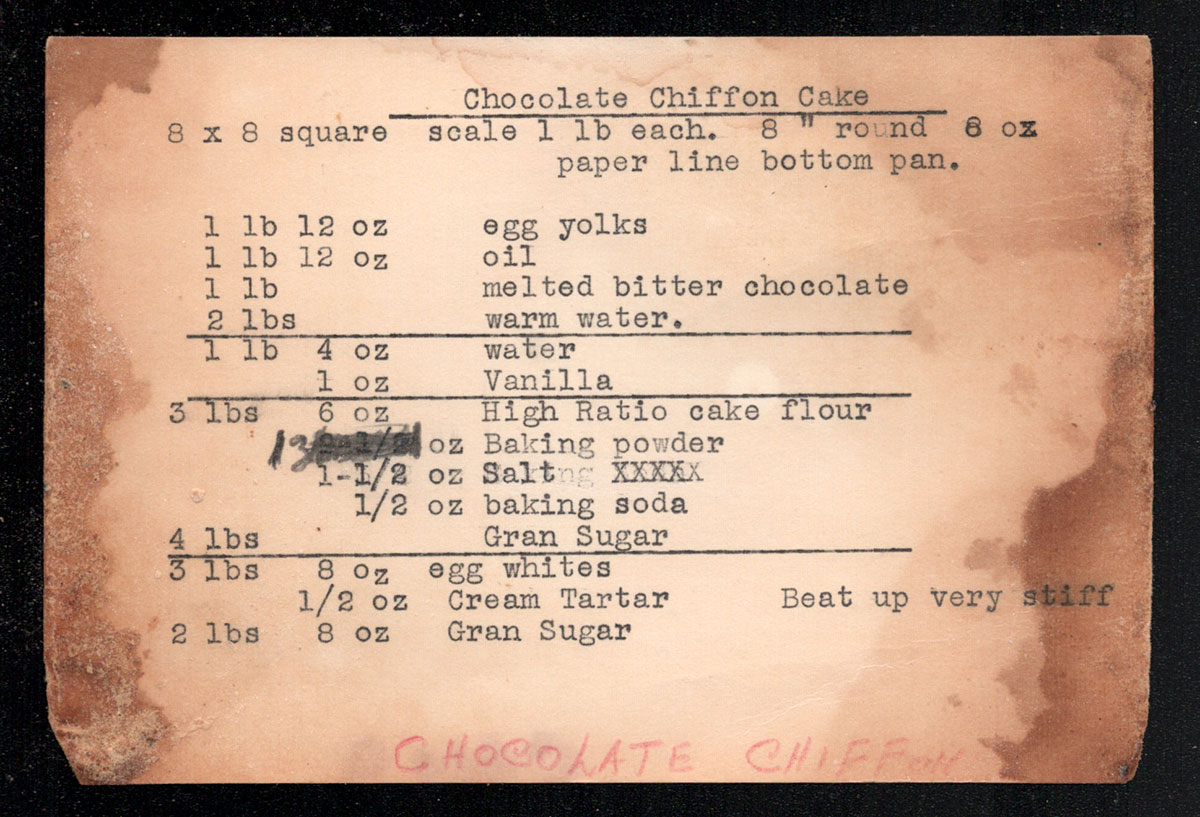 Chocolate Chiffon Cake
8 x 8 square scale 1 lb each. 8 " round 8 oz
paper line bottom pan.
1 lb 12 oz egg yolks
1 lb 12 oz oil
1 lb melted bitter chocolate
2 lbs warm water.
1 lb 4 oz water
1 oz Vanilla
3 lbs 6 oz High Ratio cake flour
13 oz Baking powder
1-1/2 oz Salt XXXXX
1/2 oz baking soda
4 lbs Gran Sugar
3 lbs 8 oz egg whites
1/2 oz Cream Tartar Beat up very stiff
2 lbs 8 oz Gran Sugar
CHOCOLATE CHIFFON